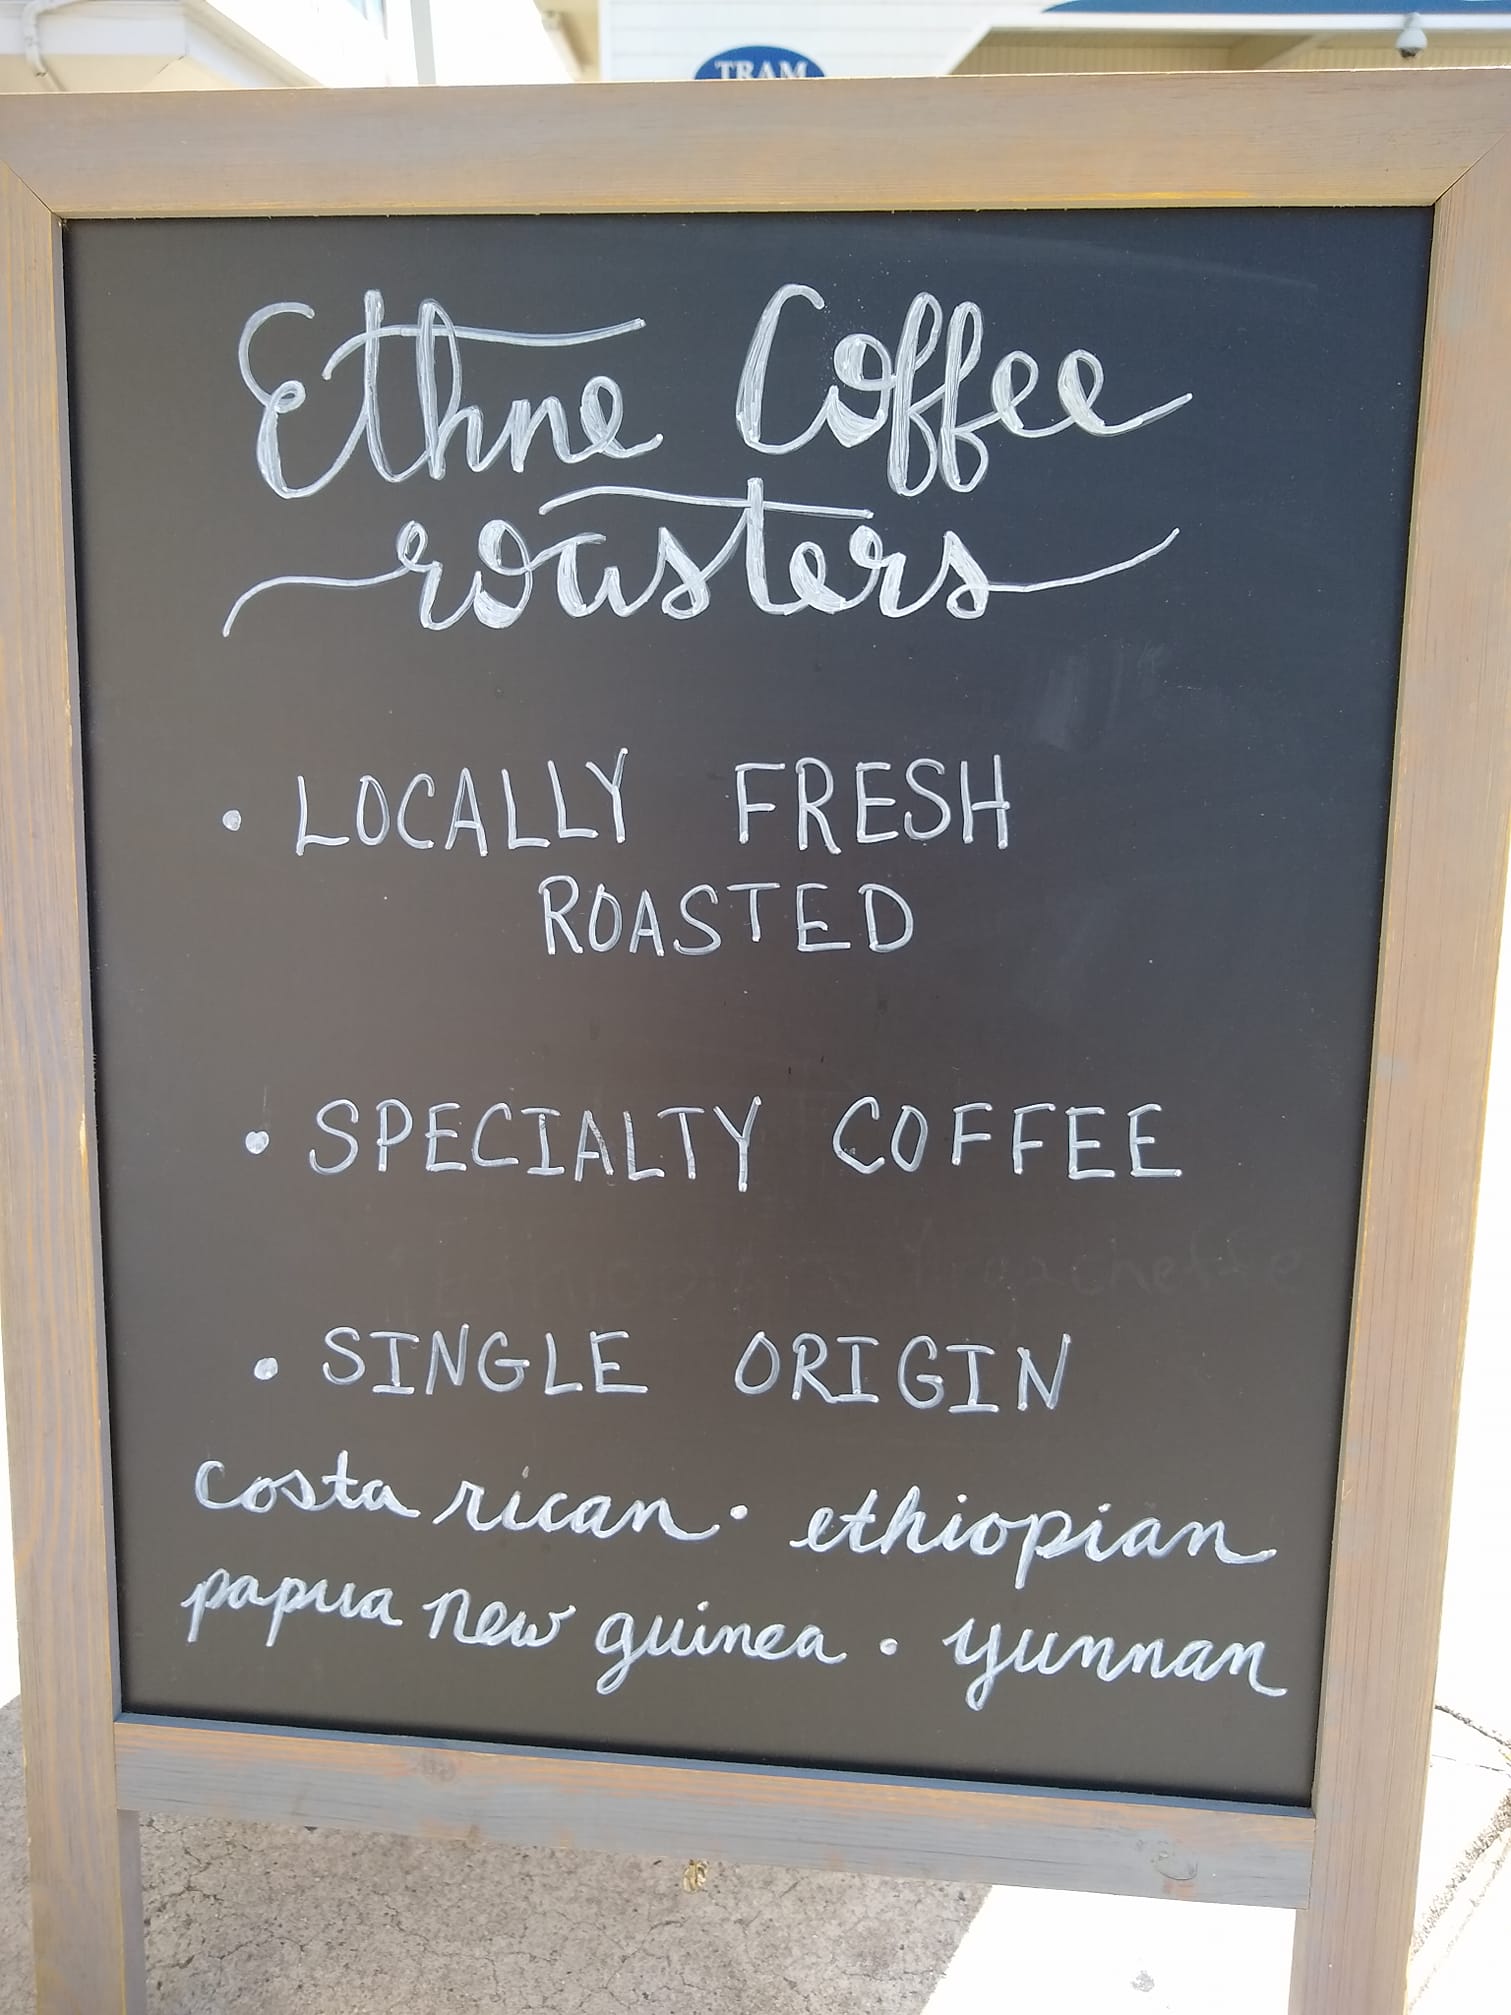 TRAM
Ethne Coffee
roasters
• LOCALLY FRESH
ROASTED
• SPECIALTY COFFEE
• SINGLE ORIGIN
costa rican • ethiopian
papua new guinea • yunnan